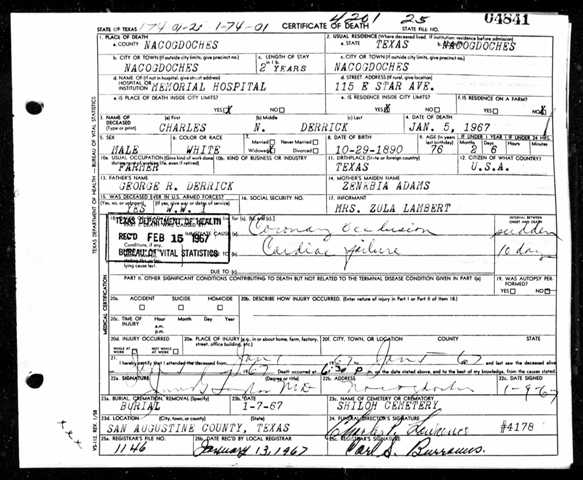 174 01-2 1-74-01 4201 25 04841
STATE OF TEXAS CERTIFICATE OF DEATH STATE FILE NO.
1. PLACE OF DEATH 2. USUAL RESIDENCE (Where deceased lived. If institution: residence before admission)
a. COUNTY NACOGDOCHES a. STATE TEXAS b. COUNTY NACOGDOCHES
b. CITY OR TOWN (If outside city limits, give precinct no.) c. LENGTH OF STAY in 1 b. c. CITY OR TOWN (If outside city limits, give precinct no.)
NACOGDOCHES 2 YEARS NACOGDOCHES
d. NAME OF (If not in hospital, give street address) HOSPITAL OR INSTITUTION MEMORIAL HOSPITAL d. STREET ADDRESS (If rural, give location) 115 E STAR AVE.
e. IS PLACE OF DEATH INSIDE CITY LIMITS? YES X NO e. IS RESIDENCE INSIDE CITY LIMITS? YES X NO f. IS RESIDENCE ON A FARM? YES NO X
3. NAME OF DECEASED (Type or print) (a) First (b) Middle (c) Last 4. DATE OF DEATH
CHARLES N. DERRICK JAN. 5, 1967
5. SEX 6. COLOR OR RACE 7. Married Never Married Widowed Divorced 8. DATE OF BIRTH 9. AGE IF UNDER 1 YEAR IF UNDER 24 HRS.
MALE WHITE 10-29-1890 76 2 6
10a. USUAL OCCUPATION (Give kind of work done 10b. KIND OF BUSINESS OR INDUSTRY 11. BIRTHPLACE (State or foreign country) 12. CITIZEN OF WHAT COUNTRY?
FARMER TEXAS U.S.A.
13. FATHER'S NAME 14. MOTHER'S MAIDEN NAME
GEORGE R. DERRICK ZENABIA ADAMS
15. WAS DECEASED EVER IN U.S. ARMED FORCES? 16. SOCIAL SECURITY NO. 17. INFORMANT
YES W.W. 1 MRS. ZULA LAMBERT
TEXAS DEPARTMENT OF HEALTH
REC'D FEB 15 1967
BUREAU OF VITAL STATISTICS
INTERVAL BETWEEN ONSET AND DEATH
IMMEDIATE CAUSE (a) Coronary Occlusion sudden
Conditions, if any, Cardiac failure 10 days
stating the under- lying cause last. DUE TO (c)
PART II. OTHER SIGNIFICANT CONDITIONS CONTRIBUTING TO DEATH BUT NOT RELATED TO THE TERMINAL DISEASE CONDITION GIVEN IN PART I(a) 19. WAS AUTOPSY PERFORMED? YES NO
20a. ACCIDENT SUICIDE HOMICIDE 20b. DESCRIBE HOW INJURY OCCURRED. (Enter nature of injury in Part I or Part II of item 18.)
20c. TIME OF INJURY Hour Month Day Year a.m. p.m.
20d. INJURY OCCURRED WHILE AT WORK NOT WHILE AT WORK 20e. PLACE OF INJURY (e.g., in or about home, farm, factory, street, office building, etc.) 20f. CITY, TOWN, OR LOCATION COUNTY STATE
21. I hereby certify that I attended the deceased from Jan 1 67 to Jan 5 67 and last saw the deceased alive
67 Death occurred at 6:30 p.m. on the date stated above, and to the best of my knowledge, from the causes stated.
22a. SIGNATURE (Degree or title) 22b. ADDRESS 22c. DATE SIGNED
M.D. Nacogdoches 1-9-67
23a. BURIAL, CREMATION, REMOVAL (Specify) 23b. DATE 23c. NAME OF CEMETERY OR CREMATORY
BURIAL 1-7-67 SHILOH CEMETERY
23d. LOCATION (City, town, or county) (State) 24. FUNERAL DIRECTOR'S SIGNATURE
SAN AUGUSTINE COUNTY, TEXAS Charles #4178
25a. REGISTRAR'S FILE NO. 25b. DATE REC'D BY LOCAL REGISTRAR 25c. REGISTRAR'S SIGNATURE
1146 January 13, 1967 Carl S. Burrows
TEXAS DEPARTMENT OF HEALTH — BUREAU OF VITAL STATISTICS
MEDICAL CERTIFICATION
VS-112 REV. 1/58